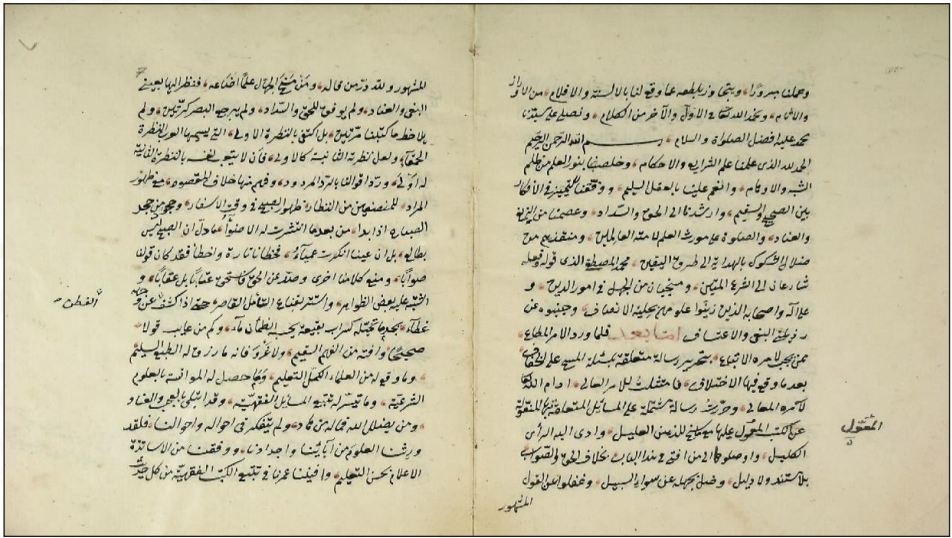 وحملنا مبرورًا، ويتجاوز بلطفه عما وقع لنا بالالسنة والاقلام، من الاوزار
والاثام، ونحمد الله تعالى فى الاول والآخر من الكلام، ونصلى على سيدنا
محمد عليه افضل الصلوة والسلام، بسم الله الرحمن الرحيم
الحمد لله الذى علمنا علم الشرايع والاحكام، وخلصنا بنور العلم من ظلم
الشبه والاوهام، وانعم علينا بالعقل السليم، ووفقنا للتمييز فى الافكار
بين الصحيح والسقيم، وارشدنا الى الحق والسداد، وعصمنا من الزيغ
والعناد، والصلوة على مورث العلم لامته العالمين، ومنقذهم من
ضلال الشكوك بالهداية الى طريق اليقين، محمد المصطفى الذى قوله وفعله
شارعان الى الشرع المبين، ومنجيان من الجهل فى امور الدين، و
على آله واصحابه الذين زينوا علومهم بحلية الانصاف، وجنبوه عن
رذيلة البغى والاعتساف، اما بعد فلما ورد الامر المطاع
عمن يجب لامره الاتباع، بتحرير رسالة متعلقة بمسئلة المسح على الخفاف
بعد ما وقع فيها الاختلاف، فامتثلت للامر العالى، ادام الله
لآمره المعالى، وحررت رسالة مشتملة على المسائل المتعلقة بها المنقولة
عن الكتب المعول عليها للذهن العليل، وادى اليه الرأى
الكليل، واوصلوها الى من افتى فى هذا الباب، بخلاف الحق والصواب
بلا سند ولا دليل، وضل بجهله عن سواء السبيل، وغفلوا عن القول
المشهور
المعول
للمشهور ولله در من قاله، ومن منح الجهال علما اضاعه، فنظر اليها بعين
البغى والعناد، ولم يوفق للحق والسداد، ولم يرجع البصر كرتين، ولم
يلاحظ ما كتبنا مرتين، بل اكتفى بالنظرة الاولى، التى يسميها العرب النظرة
الحمقاء، ولعل نظرته الثانية كالاولى، فان لا يتوجه لنفسه بالنظرة الثانية
له اولى، ورد اقوالنا بالرد المردود، وفهم منها خلاف المقصود، مع ظهور
المراد، للمنصفين من النظار، ظهور الصبح فى وقت الاسفار، وجحود من جحد
الصباح اذا بدا، من بعد ما انتشرت له الاضواء، ما دل ان الصبح ليس
بطالع، بل ان عينا انكرت عمياء، فخطأنا تارة، واخطأ فقد كان قولنا
صوابًا، ومنع كلامنا اخرى، وصد عن الحق فاستحق عتابًا بل عقابًا، و
اشتبه عليه بعض الظواهر، واستتر بقناع التأمل القاصر، حتى اذا كشف عن وجهه
غطاءه، يجد ما تخيله كسراب بقيعة يحسبه الظمآن ماء، وكم من عايب قولا
صحيحًا، وآفته من الفهم السقيم، ولا غرو فانه ما رزق له الطبع السليم
، وما وقع له من العلماء اكمل التعليم، وما حصل له الموانسة بالعلوم
الشرعية، وما تيسر له تتبع المسايل الفقهية، وقد ابتلى بالعجب والعناد
، ومن يضلل الله فما له من هاد، ولم يتفكر فى احواله واحوالنا، فلقد
ورثنا العلوم من آبائنا واجدادنا، ووفقنا من الاساتذة
الاعلام بحسن التعليم، وافنينا عمرنا فى تتبع الكتب الفقهية من كل
الفطن